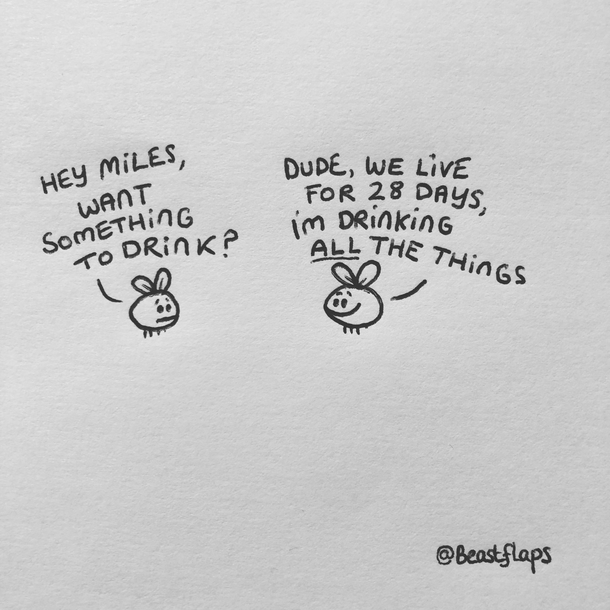 HEY MILES,
WANT
SOMETHING
TO DRINK?
DUDE, WE LIVE
FOR 28 DAYS,
i'm DRINKING
ALL THE THINGS
@Beastflaps